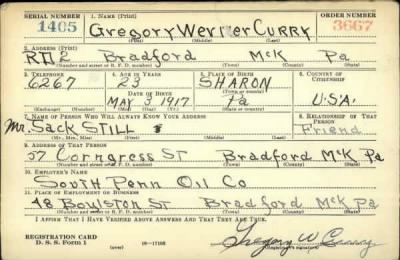 SERIAL NUMBER 1. NAME (Print) ORDER NUMBER
1405 Gregory Werner CURRY 3667
(First) (Middle) (Last)
2. ADDRESS (Print)
RD 2 Bradford McK Pa
(Number and street or R. F. D. number) (Town) (County) (State)
3. TELEPHONE 4. AGE IN YEARS 5. PLACE OF BIRTH 6. COUNTRY OF CITIZENSHIP
6267 23 SHARON
DATE OF BIRTH
MAY 3 1917 Pa U.S.A.
(Exchange) (Number) (Mo.) (Day) (Yr.) (Town or county) (State or country)
7. NAME OF PERSON WHO WILL ALWAYS KNOW YOUR ADDRESS 8. RELATIONSHIP OF THAT PERSON
Mr. Jack STILL Friend
(Mr., Mrs., Miss) (First) (Middle) (Last)
9. ADDRESS OF THAT PERSON
57 Corngress St Bradford McK Pa
(Number and street or R. F. D. number) (Town) (County) (State)
10. EMPLOYER'S NAME
South Penn Oil Co
11. PLACE OF EMPLOYMENT OR BUSINESS
48 Boylston St Bradford McK Pa
(Number and street or R. F. D. number) (Town) (County) (State)
I AFFIRM THAT I HAVE VERIFIED ABOVE ANSWERS AND THAT THEY ARE TRUE.
REGISTRATION CARD
D. S. S. Form 1 (over) 16-17105 Gregory W Curry
(Registrant's signature)